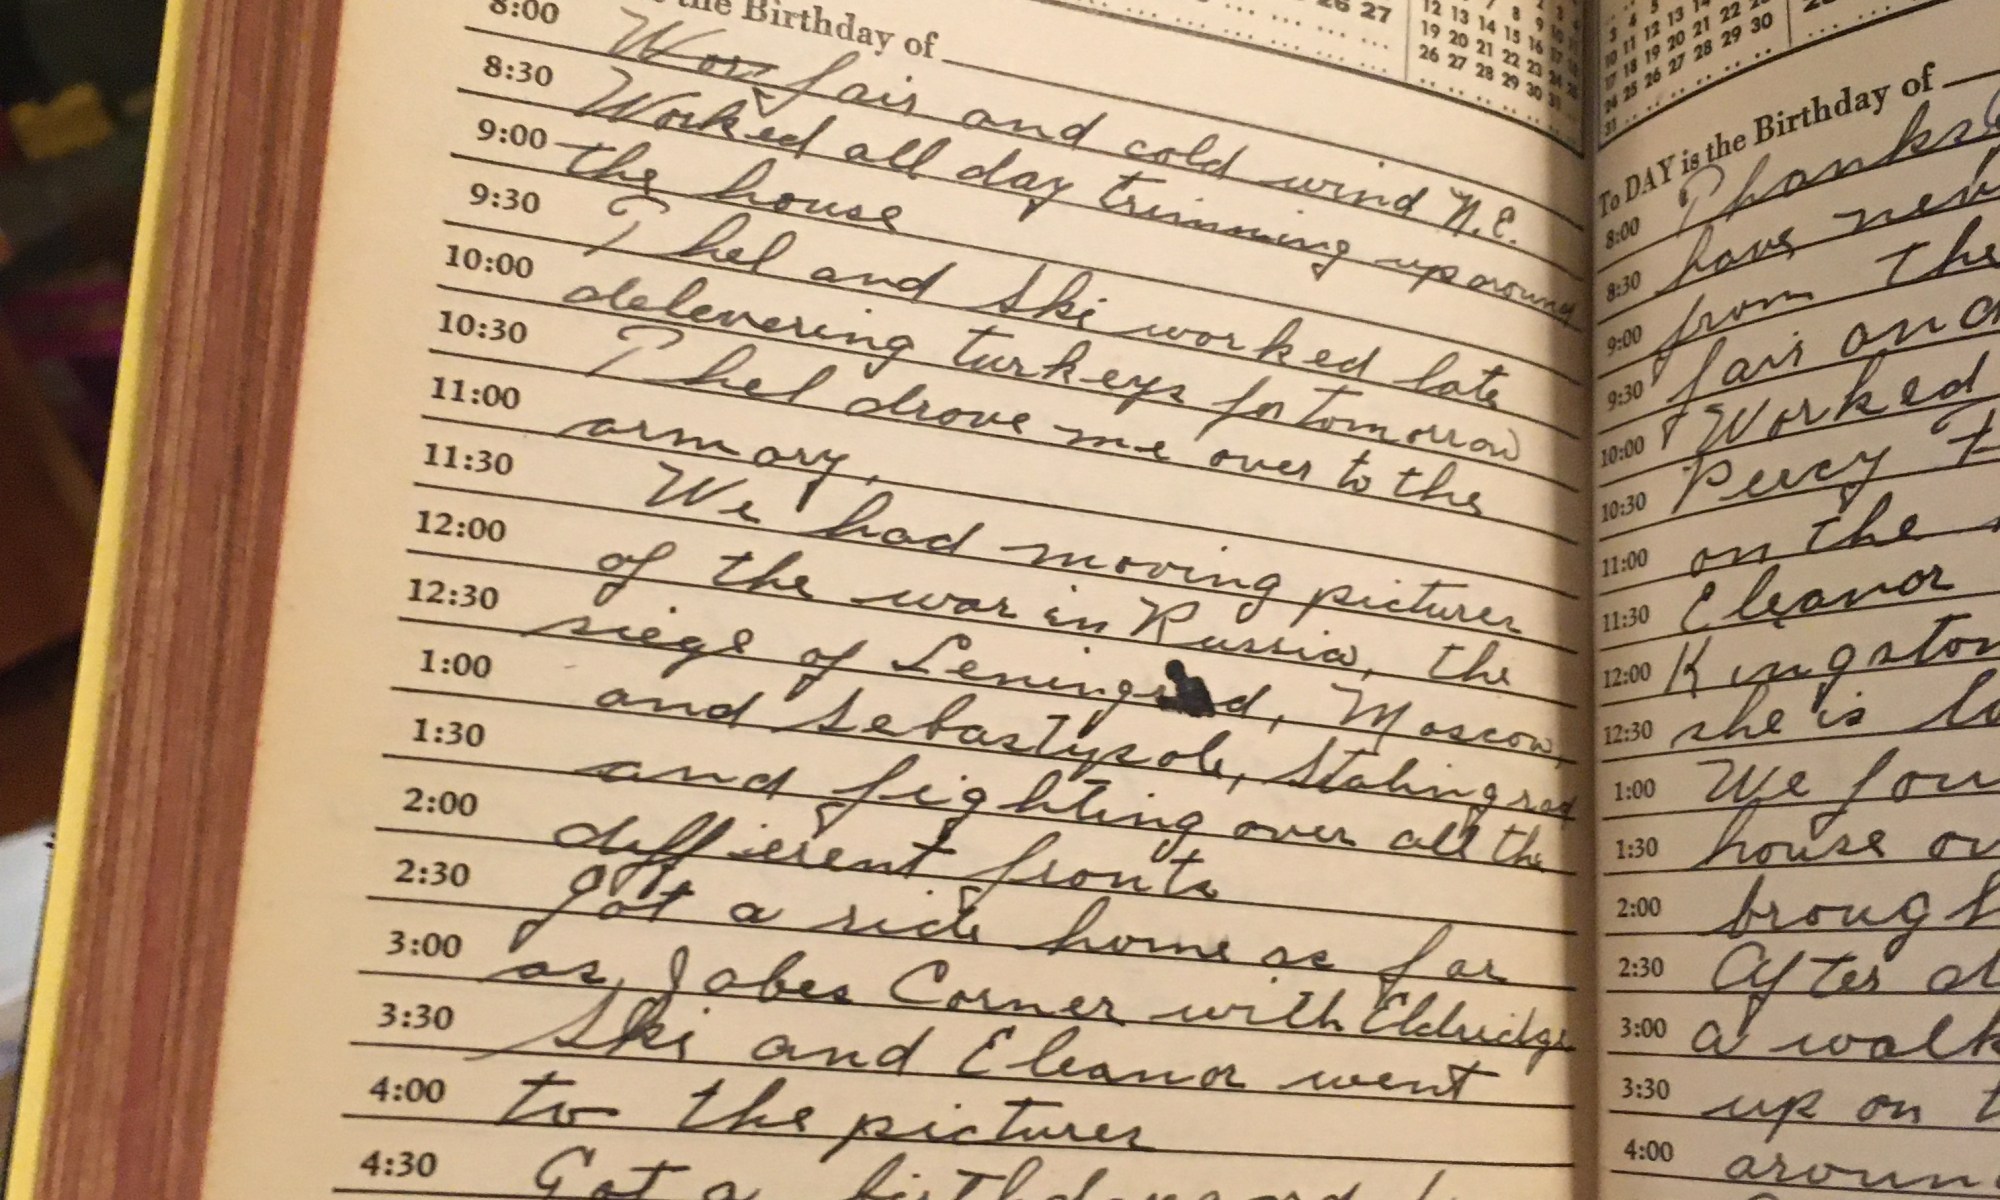 the Birthday of
8:00 Wor fair and cold wind N.E.
8:30 Worked all day trimming up around
9:00 the house
9:30 Phel and Ski worked late
10:00 delevering turkeys for tomorrow
10:30 Phel drove me over to the
11:00 armory,
11:30 We had moving pictures
12:00 of the war in Russia, the
12:30 siege of Leningrad, Moscow,
1:00 and Sebastypole, Stalingrad
1:30 and fighting over all the
2:00 diffierent fronts
2:30 Got a ride home as far
3:00 as Jabes Corner with Eldridge
3:30 Ski and Eleanor went
4:00 to the pictures
4:30 Got a
26 27
12 13 14
19 20 21 22 23
26 27 28 29 30 31
10 11 12 13
17 18 19 20 21 22
24 25 26 27 28 29 30
31
To DAY is the Birthday of
8:00
8:30 have
9:00 from the
9:30 fair and
10:00 Worked
10:30 Percy
11:00 on the
11:30 Eleanor
12:00 Kingston
12:30 she is
1:00 We
1:30 house
2:00
2:30 After
3:00 a walk
3:30 up on
4:00